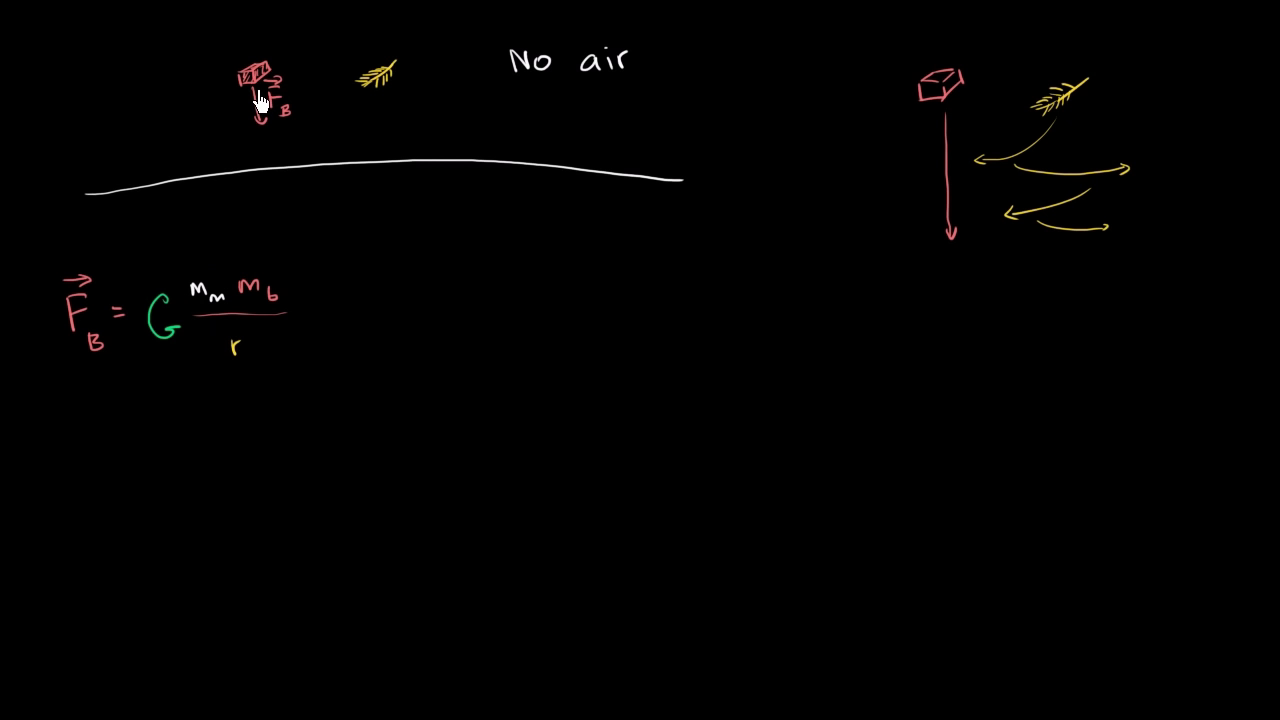 No air
F⃗_B
F⃗_B = G m_m m_b / r